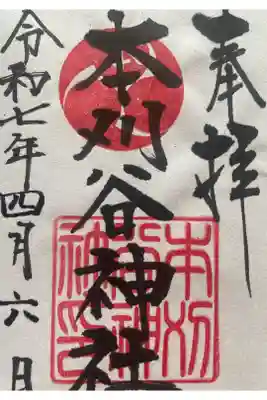 奉拝
本刈谷神社
令和七年四月六日
本刈
谷神社
神印